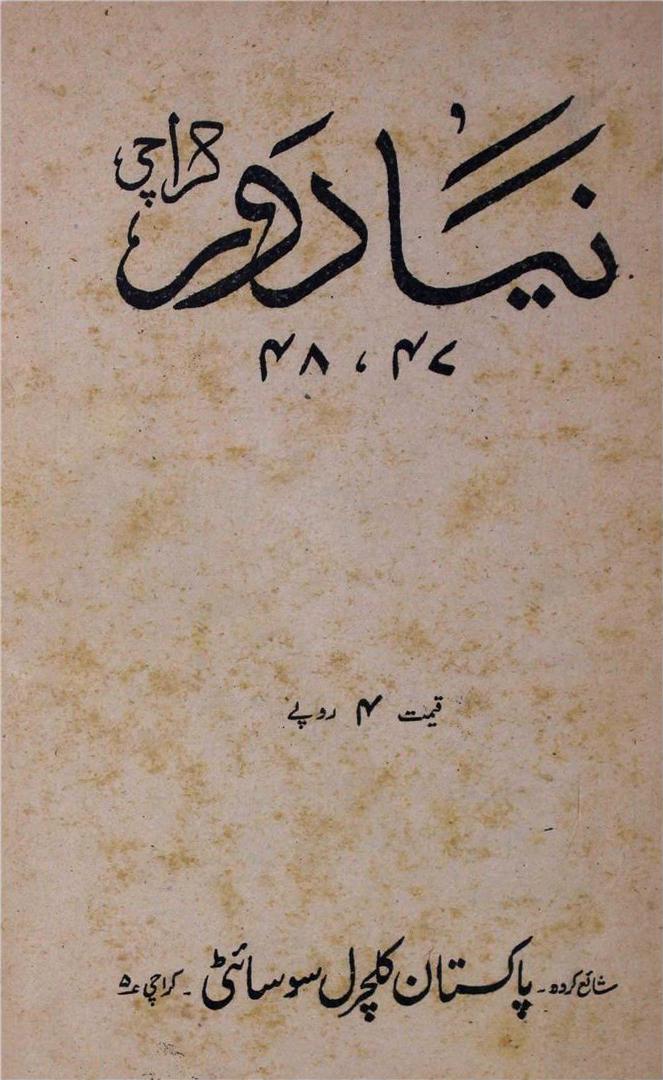 نیا دَور کراچی
۴۷ ، ۴۸
قیمت ۴ روپے
شائع کردہ ۔ پاکستان کلچرل سوسائٹی ۔ کراچی ۵